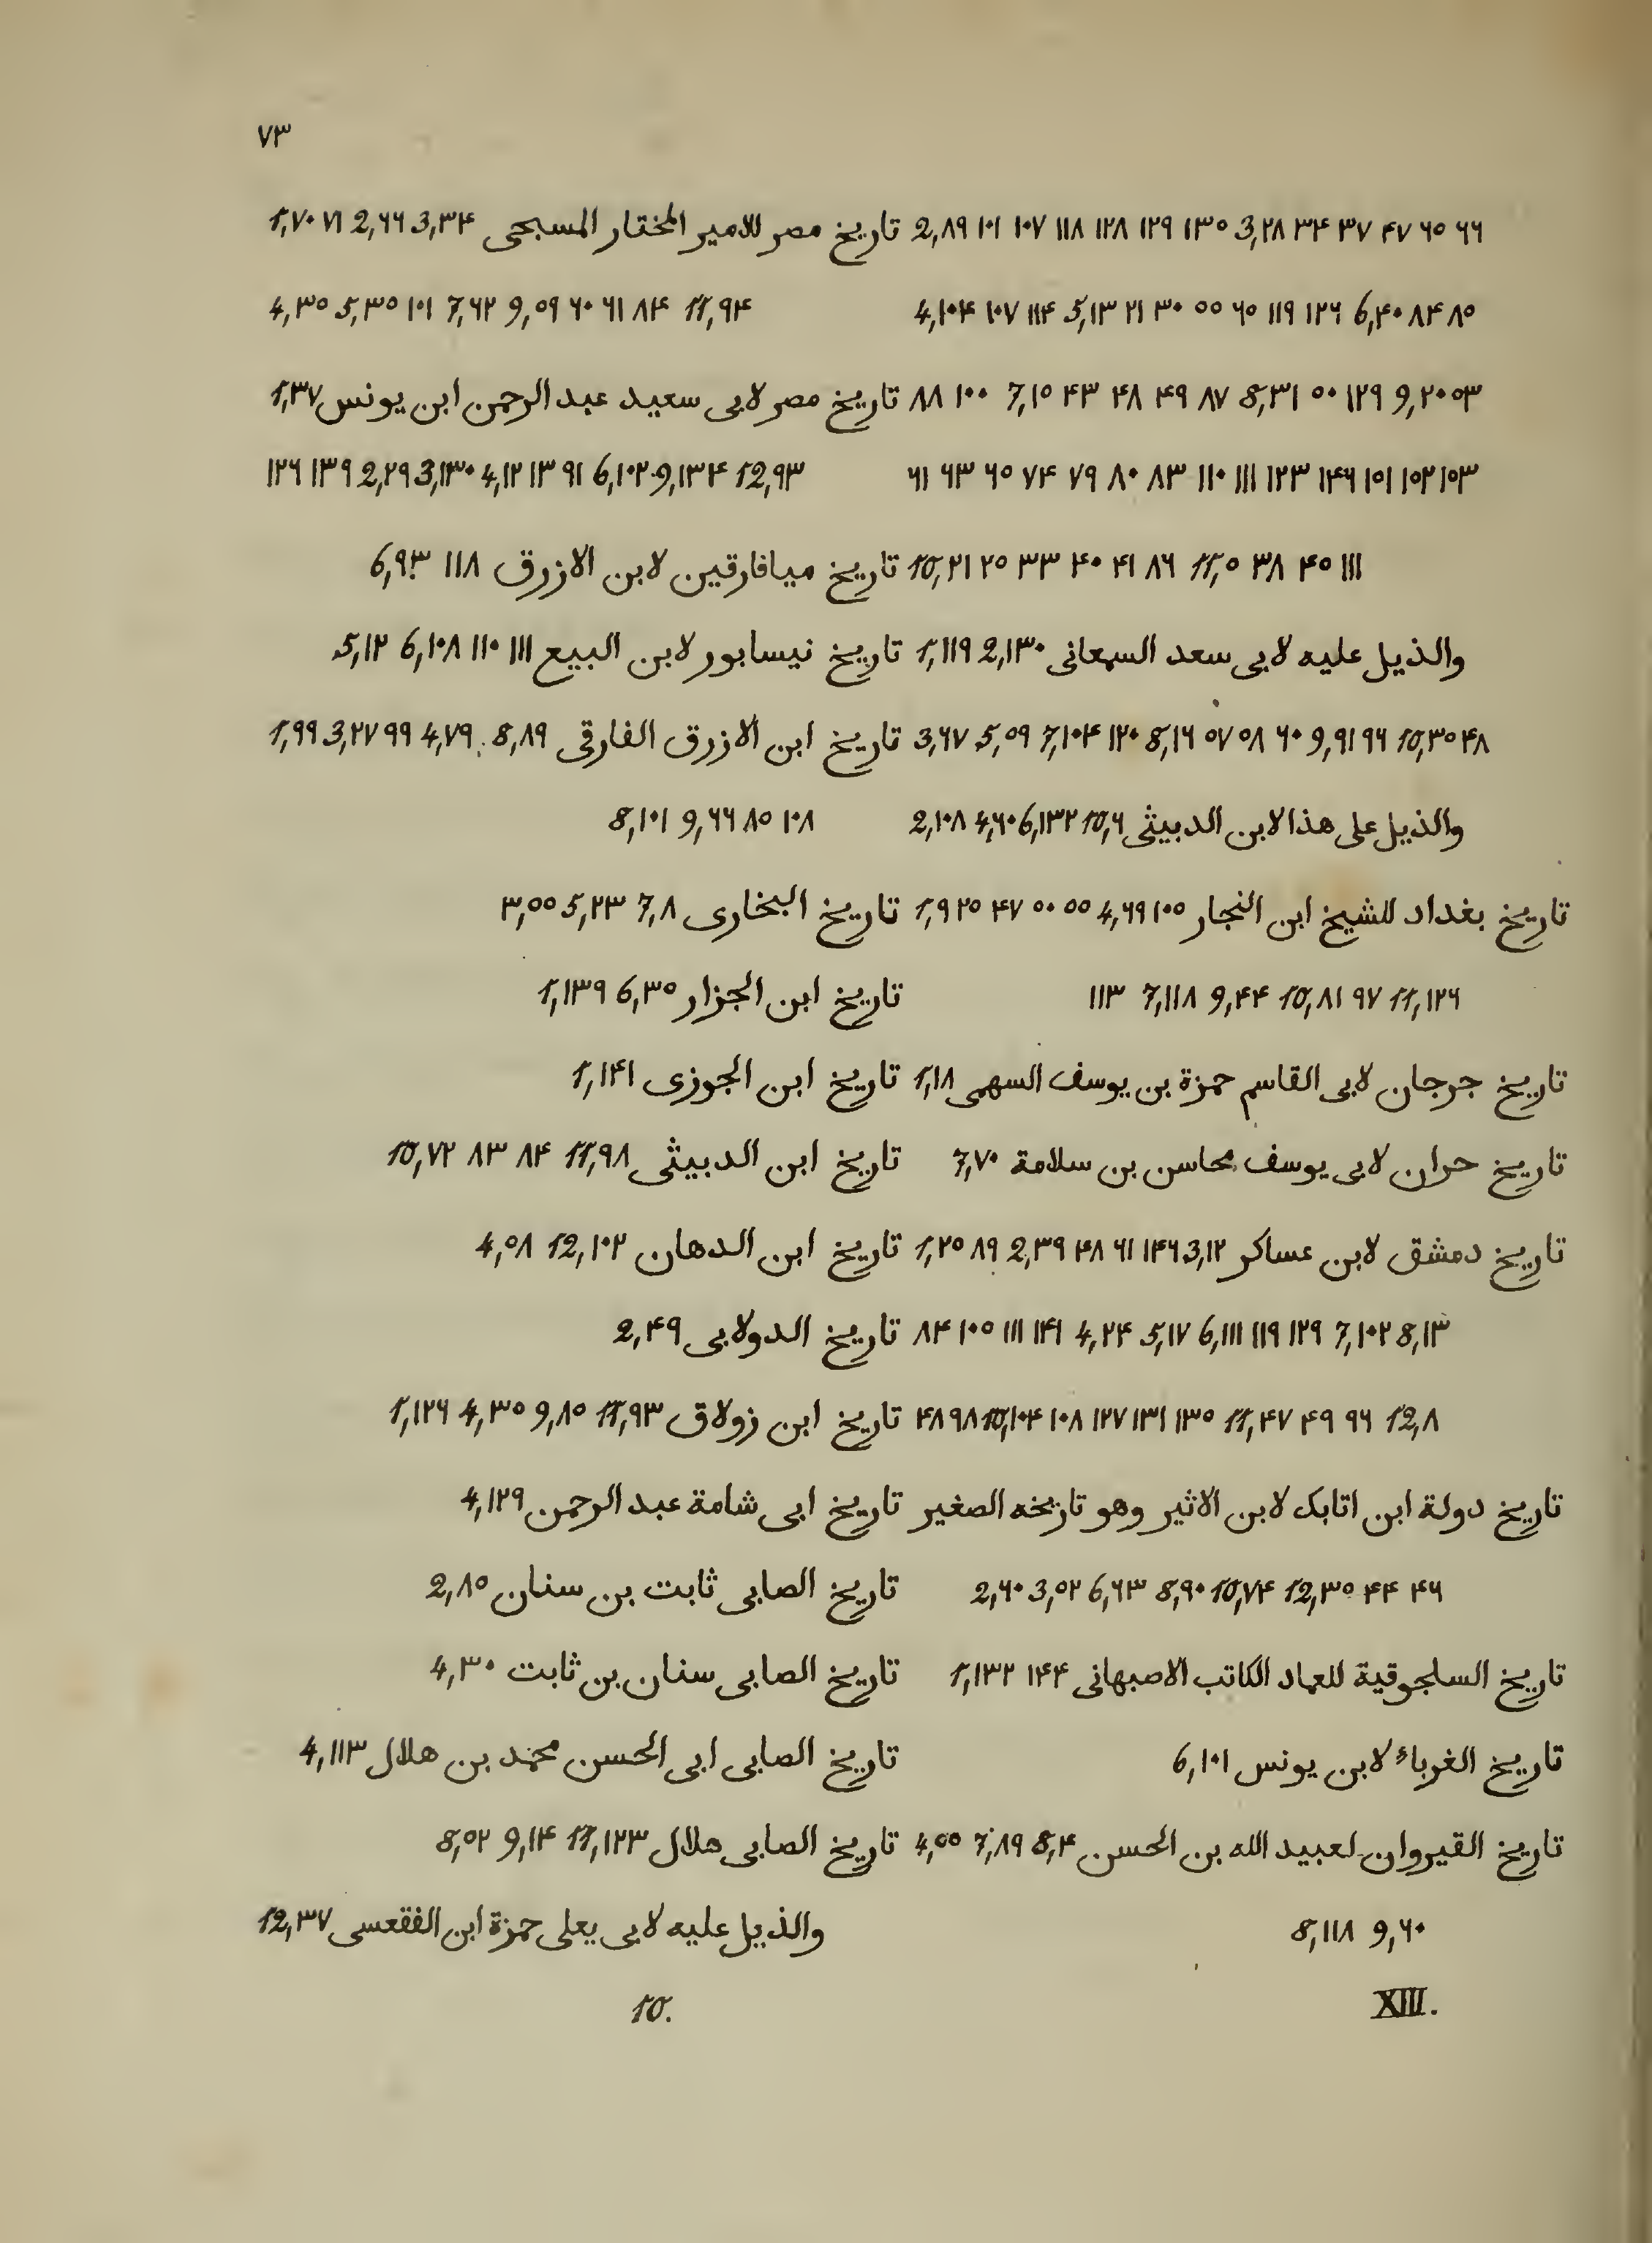 ٧٣
2,٨٩ ١٠١ ١٠٧ ١١٨ ١٢٨ ١٢٩ ١٣٥ 3,٢٨ ٣٤ ٣٧ ٤٧ ٦٥ ٦٦
4,١٠٤ ١٠٧ ١١٤ 5,١٣ ٢١ ٣٠ ٥٥ ٦٥ ١١٩ ١٢٦ 6,٤٠ ٨٤ ٨٥
٨٨ ١٠٠ 7,١٥ ٤٣ ٤٨ ٤٩ ٨٧ 8,٣١ ٥٠ ١٢٩ 9,٢٠ ٥٣
٦١ ٦٣ ٦٥ ٧٤ ٧٩ ٨٠ ٨٣ ١١٠ ١١١ ١٢٣ ١٤٦ ١٥١ ١٥٢ ١٥٣
10,٢١ ٢٥ ٣٣ ٤٠ ٤١ ٨٦ 11,٥ ٣٨ ٤٥ ١١١
والذيل عليه لابى سعد السمعانى 1,١١٩ 2,١٣٠
3,٦٧ 5,٥٩ 7,١٠٤ ١٢٠ 8,١٦ ٥٧ ٥٨ ٦٠ 9,٩١ ٩٦ 10,٣٥ ٤٨
والذيل على هذا لابن الدبيثى 2,١٠٨ 4,٦٠ 6,١٣٢ 10,٦
تاريخ بغداد للشيخ ابن النجار 1,٩ ٢٥ ٤٧ ٥٠ ٥٥ 4,٦٩ ١٠٥
١١٣ 7,١١٨ 9,٤٤ 10,٨١ ٩٧ 11,١٢٦
تاريخ جرجان لابى القاسم حمزة بن يوسف السهمى 1,١٨
تاريخ حران لابى يوسف محاسن بن سلامة 7,٧٠
تاريخ دمشق لابن عساكر 1,٢٥ ٨٩ 2,٣٩ ٤٨ ٦١ ١٤٦ 3,١٢
٨٤ ١٠٥ ١١١ ١٤١ 4,٢٤ 5,١٧ 6,١١١ ١١٩ ١٢٩ 7,١٠٢ 8,١٣
٤٨ ٩٨ 10,١٠٤ ١٠٨ ١٢٧ ١٣١ ١٣٥ 11,٤٧ ٤٩ ٩٦ 12,٨
تاريخ دولة ابن اتابك لابن الاثير وهو تاريخه الصغير
2,٦٠ 3,٥٢ 6,٦٣ 8,٩٠ 10,٧٤ 12,٣٥ ٤٤ ٤٦
تاريخ السلجوقية للعماد الكاتب الاصبهانى 1,١٣٢ ١٤٤
تاريخ الغرباء لابن يونس 6,١٠١
تاريخ القيروان لعبيد الله بن الحسن 4,٥٥ 7,٨٩ 8,٤
8,١١٨ 9,٦٠
تاريخ مصر للامير المختار المسبحى 1,٧٠ ٧١ 2,٦٦ 3,٣٤
4,٣٥ 5,٣٥ ١٠١ 7,٦٢ 9,٥٩ ٦٠ ٦١ ٨٤ 11,٩٤
تاريخ مصر لابى سعيد عبد الرحمن ابن يونس 1,٣٧
١٢٦ ١٣٩ 2,٢٩ 3,١٣٠ 4,١٢ ١٣ ٩١ 6,١٠٢ 9,١٣٤ 12,٩٣
تاريخ ميافارقين لابن الازرق 6,٩٣ ١١٨
تاريخ نيسابور لابن البيع 5,١٢ 6,١٠٨ ١١٠ ١١١
تاريخ ابن الازرق الفارقى 1,٩٩ 3,٢٧ ٩٩ 4,٧٩ 8,٨٩
8,١٠١ 9,٦٦ ٨٥ ١٠٨
تاريخ البخارى ٣,٥٥ 5,٢٣ 7,٨
تاريخ ابن الجزار 1,١٣٩ 6,٣٥
تاريخ ابن الجوزى 1,١٤١
تاريخ ابن الدبيثى 10,٧٢ ٨٣ ٨٤ 11,٩٨
تاريخ ابن الدهان 4,٥٨ 12,١٠٢
تاريخ الدولابى 2,٤٩
تاريخ ابن زولاق 1,١٢٦ 4,٣٥ 9,٨٥ 11,٩٣
تاريخ ابى شامة عبد الرحمن 4,١٢٩
تاريخ الصابى ثابت بن سنان 2,٨٥
تاريخ الصابى سنان بن ثابت 4,٣٠
تاريخ الصابى ابى الحسن محمد بن هلال 4,١١٣
تاريخ الصابى هلال 8,٥٢ 9,١٤ 11,١٢٣
والذيل عليه لابى يعلى حمزة ابن الفقعسى 12,٣٧
XIII.
10.